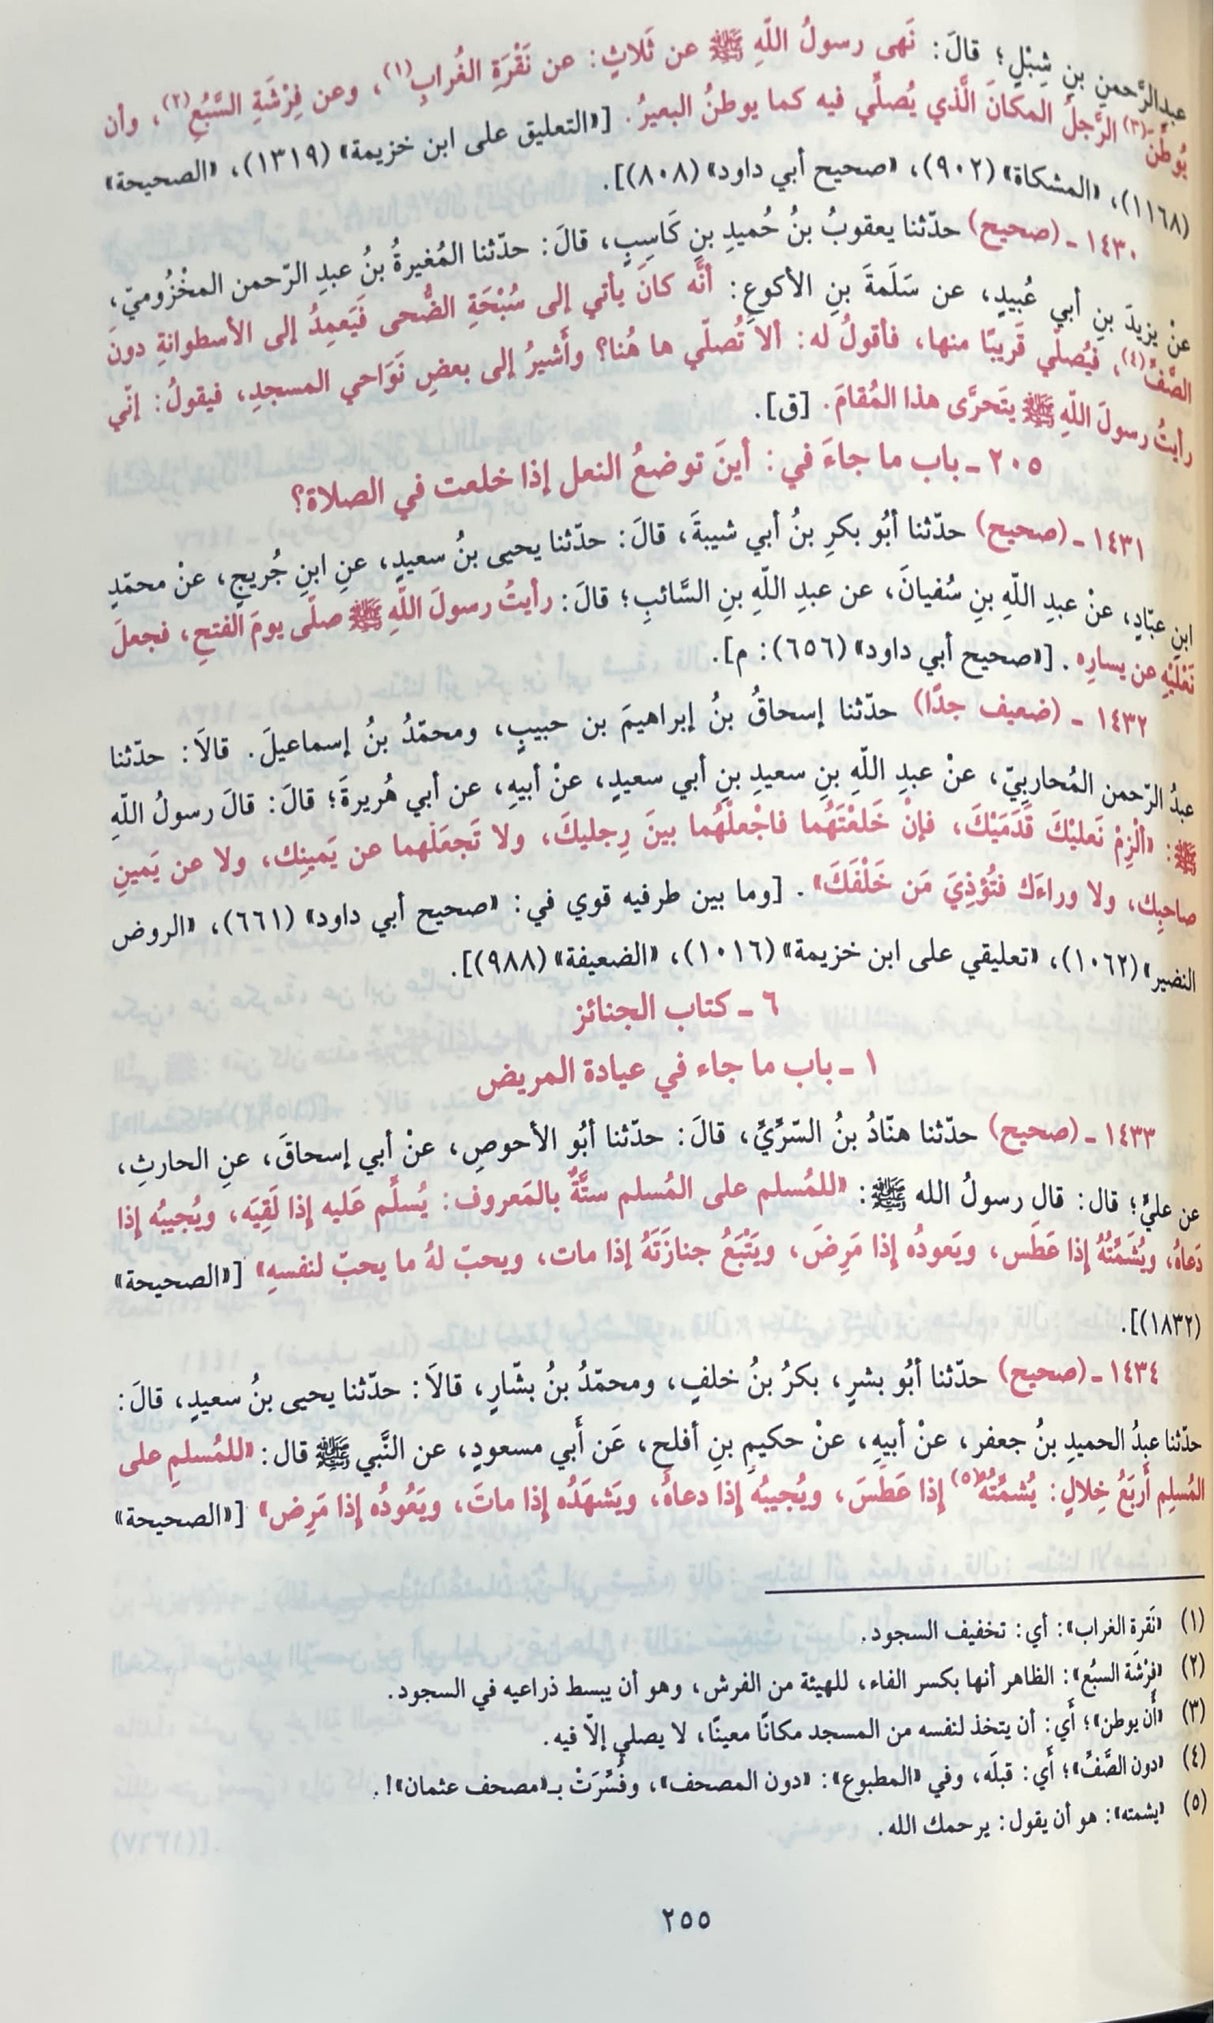 عبدالرَّحمنِ بنِ شِبْلٍ؛ قالَ: نَهى رسولُ اللّهِ ﷺ عن ثَلاثٍ: عن نَقْرَةِ الغُرابِ(١)، وعن فِرْشَةِ السَّبُعِ(٢)، وأن
يُوطِّنَ(٣) الرَّجلُ المكانَ الَّذي يُصلِّي فيه كما يوطنُ البعيرُ. [«التعليق على ابن خزيمة» (١٣١٩)، «الصحيحة»
(١١٦٨)، «المشكاة» (٩٠٢)، «صحيح أبي داود» (٨٠٨)].
١٤٣٠ ـ (صحيح) حدّثنا يعقوبُ بنُ حُميدِ بنِ كَاسِبٍ، قالَ: حدّثنا المُغيرةُ بنُ عبدِ الرّحمن المخْزُوميّ،
عنْ يزيدَ بنِ أبي عُبيدٍ، عن سَلَمَةَ بنِ الأكوعِ: أنَّه كانَ يأتي إلى سُبْحَةِ الضُّحى فَيَعمِدُ إلى الأسطوانةِ دونَ
الصَّفِّ(٤)، فيُصلّي قَريبًا منها، فأقولُ له: ألا تُصلّي ها هُنا؟ وأَشيرُ إلى بعضِ نَوَاحي المسجدِ، فيقولُ: إنّي
رأيتُ رسولَ اللّهِ ﷺ يتَحرَّى هذا المُقامَ. [ق].
٢٠٥ ـ باب ما جاءَ في: أينَ توضعُ النعل إذا خلعت في الصلاة؟
١٤٣١ ـ (صحيح) حدّثنا أبُو بكرِ بنُ أبي شيبةَ، قالَ: حدّثنا يحيى بنُ سعيدٍ، عنِ ابنِ جُريجٍ، عنْ محمّدِ
ابنِ عبّادٍ، عنْ عبدِ اللّهِ بنِ سُفيانَ، عن عبدِ اللّهِ بنِ السَّائبِ؛ قالَ: رأيتُ رسولَ اللّهِ ﷺ صلّى يومَ الفتحِ، فجعلَ
نَعْلَيْهِ عن يسارِه. [«صحيح أبي داود» (٦٥٦): م].
١٤٣٢ ـ (ضعيف جدًا) حدّثنا إسحاقُ بنُ إبراهيمَ بن حبيبٍ، ومحمّدُ بنُ إسماعيلَ. قالاَ: حدّثنا
عبدُ الرّحمن المُحاربِيّ، عنْ عبدِ اللّهِ بنِ سعيدِ بنِ أبي سعيدٍ، عنْ أبيهِ، عن أبي هُريرةَ؛ قالَ: قالَ رسولُ اللّهِ
ﷺ: «ألْزِمْ نَعليْكَ قَدَمَيْكَ، فإنْ خَلَعْتَهُما فاجْعلْهُما بينَ رِجليكَ، ولا تَجعَلْهما عن يَمينِك، ولا عن يَمينِ
صاحبِك، ولا وراءَك فتُؤذِيَ مَن خَلْفَكَ». [وما بين طرفيه قوي في: «صحيح أبي داود» (٦٦١)، «الروض
النضير» (١٠٦٢)، «تعليقي على ابن خزيمة» (١٠١٦)، «الضعيفة» (٩٨٨)].
٦ ـ كتاب الجنائز
١ ـ باب ما جاء في عيادة المريض
١٤٣٣ ـ (صحيح) حدّثنا هنّادُ بنُ السّرِّيِّ، قالَ: حدّثنا أبُو الأحوصِ، عنْ أبي إسحاقَ، عنِ الحارثِ،
عن عليٍّ؛ قال: قال رسولُ الله ﷺ: «للمُسلم على المُسلم ستَّةٌ بالمَعروف: يُسلِّم عَليه إذا لَقِيَه، ويُجيبُه إذا
دَعاهُ، ويُشَمِّتُهُ إذا عَطَس، ويَعودُه إذا مَرِضَ، ويَتْبَعُ جنازَتَهُ إذا مات، ويحبّ لهُ ما يحبّ لنفسهِ» [«الصحيحة»
(١٨٣٢)].
١٤٣٤ ـ (صحيح) حدّثنا أبُو بشرٍ، بكرُ بنُ خلفٍ، ومحمّدُ بنُ بشّارٍ، قالاَ: حدّثنا يحيى بنُ سعيدٍ، قالَ:
حدّثنا عبدُ الحميدِ بنُ جعفر، عنْ أبيهِ، عنْ حكيمِ بنِ أفلح، عَن أَبي مسعودٍ، عن النَّبي ﷺ قال: «للمُسلمِ على
المُسلِم أَربَعُ خِلالٍ: يُشمِّتُهُ(٥) إذا عَطَسَ، ويُجيبُه إذا دعاهُ، ويَشهَدُه إذا ماتَ، ويَعُودُه إذا مَرِض» [«الصحيحة»
(١) «نَقرة الغراب»: أي: تخفيف السجود.
(٢) «فِرْشَة السبُع»: الظاهر أنها بكسر الفاء، للهيئة من الفرش، وهو أن يبسط ذراعيه في السجود.
(٣) «أَن يوطن»؛ أَي: أن يتخذ لنفسه من المسجد مكانًا معينًا، لا يصلي إلّا فيه.
(٤) «دون الصَّفِّ»؛ أَي: قبلَه، وفي «المطبوع»: «دون المصحف»، وفُسِّرَتْ بـ«مصحف عثمان»!.
(٥) «يشمته»: هو أن يقول: يرحمك الله.
٢٥٥